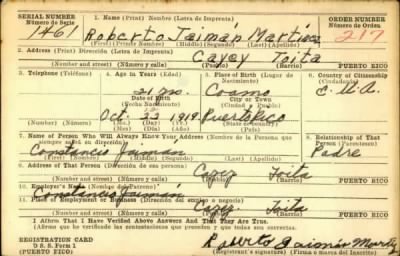 SERIAL NUMBER
Número de Serie
1461
1. Name (Print) Nombre (Letra de Imprenta)
Roberto Jaimán Martínez
(First) (Primer Nombre) (Middle) (Segundo) (Last) (Apellido)
ORDER NUMBER
Número de Orden
217
2. Address (Print) Dirección (Letra de Imprenta)
Cayey Toita
(Barrio)
PUERTO RICO
3. Telephone (Teléfono)
4. Age in Years (Edad)
21
Date of Birth
(Fecha Nacimiento)
Oct. 23 1919
5. Place of Birth (Lugar de Nacimiento)
Coamo
City or Town
(Ciudad o Pueblo)
Puerto Rico
6. Country of Citizenship
(Ciudadanía)
E. U. A.
7. Name of Person Who Will Always Know Your Address (Nombre de la Persona que siempre sabrá su dirección)
Constancio Jaimán
(Middle) (Segundo) (Last) (Apellido)
8. Relationship of That Person (Parentesco)
Padre
9. Address of That Person (Dirección de esa persona)
Cayey Toita
(Barrio)
PUERTO RICO
10. Employer's Name (Nombre del Patrono)
Constancio Jaimán
11. Place of Employment or Business (Dirección del empleo o negocio)
Cayey Toita
(Barrio)
PUERTO RICO
I Affirm That I Have Verified Above Answers And That They Are True.
(Afirmo que he verificado las contestaciones que preceden y que son verdaderas)
REGISTRATION CARD
D. S. S. Form 1
PUERTO RICO
Roberto Jaimán
Registrant's signature (Firma)